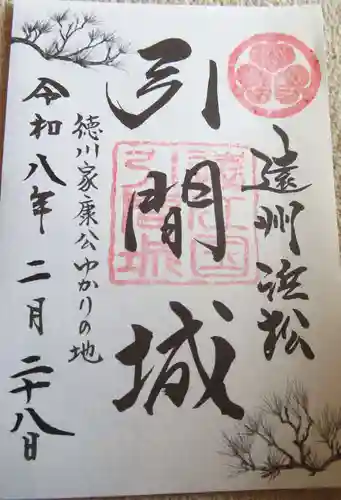 遠州浜松
引間城
徳川家康公ゆかりの地
令和八年二月二十八日
遠江国
引間城